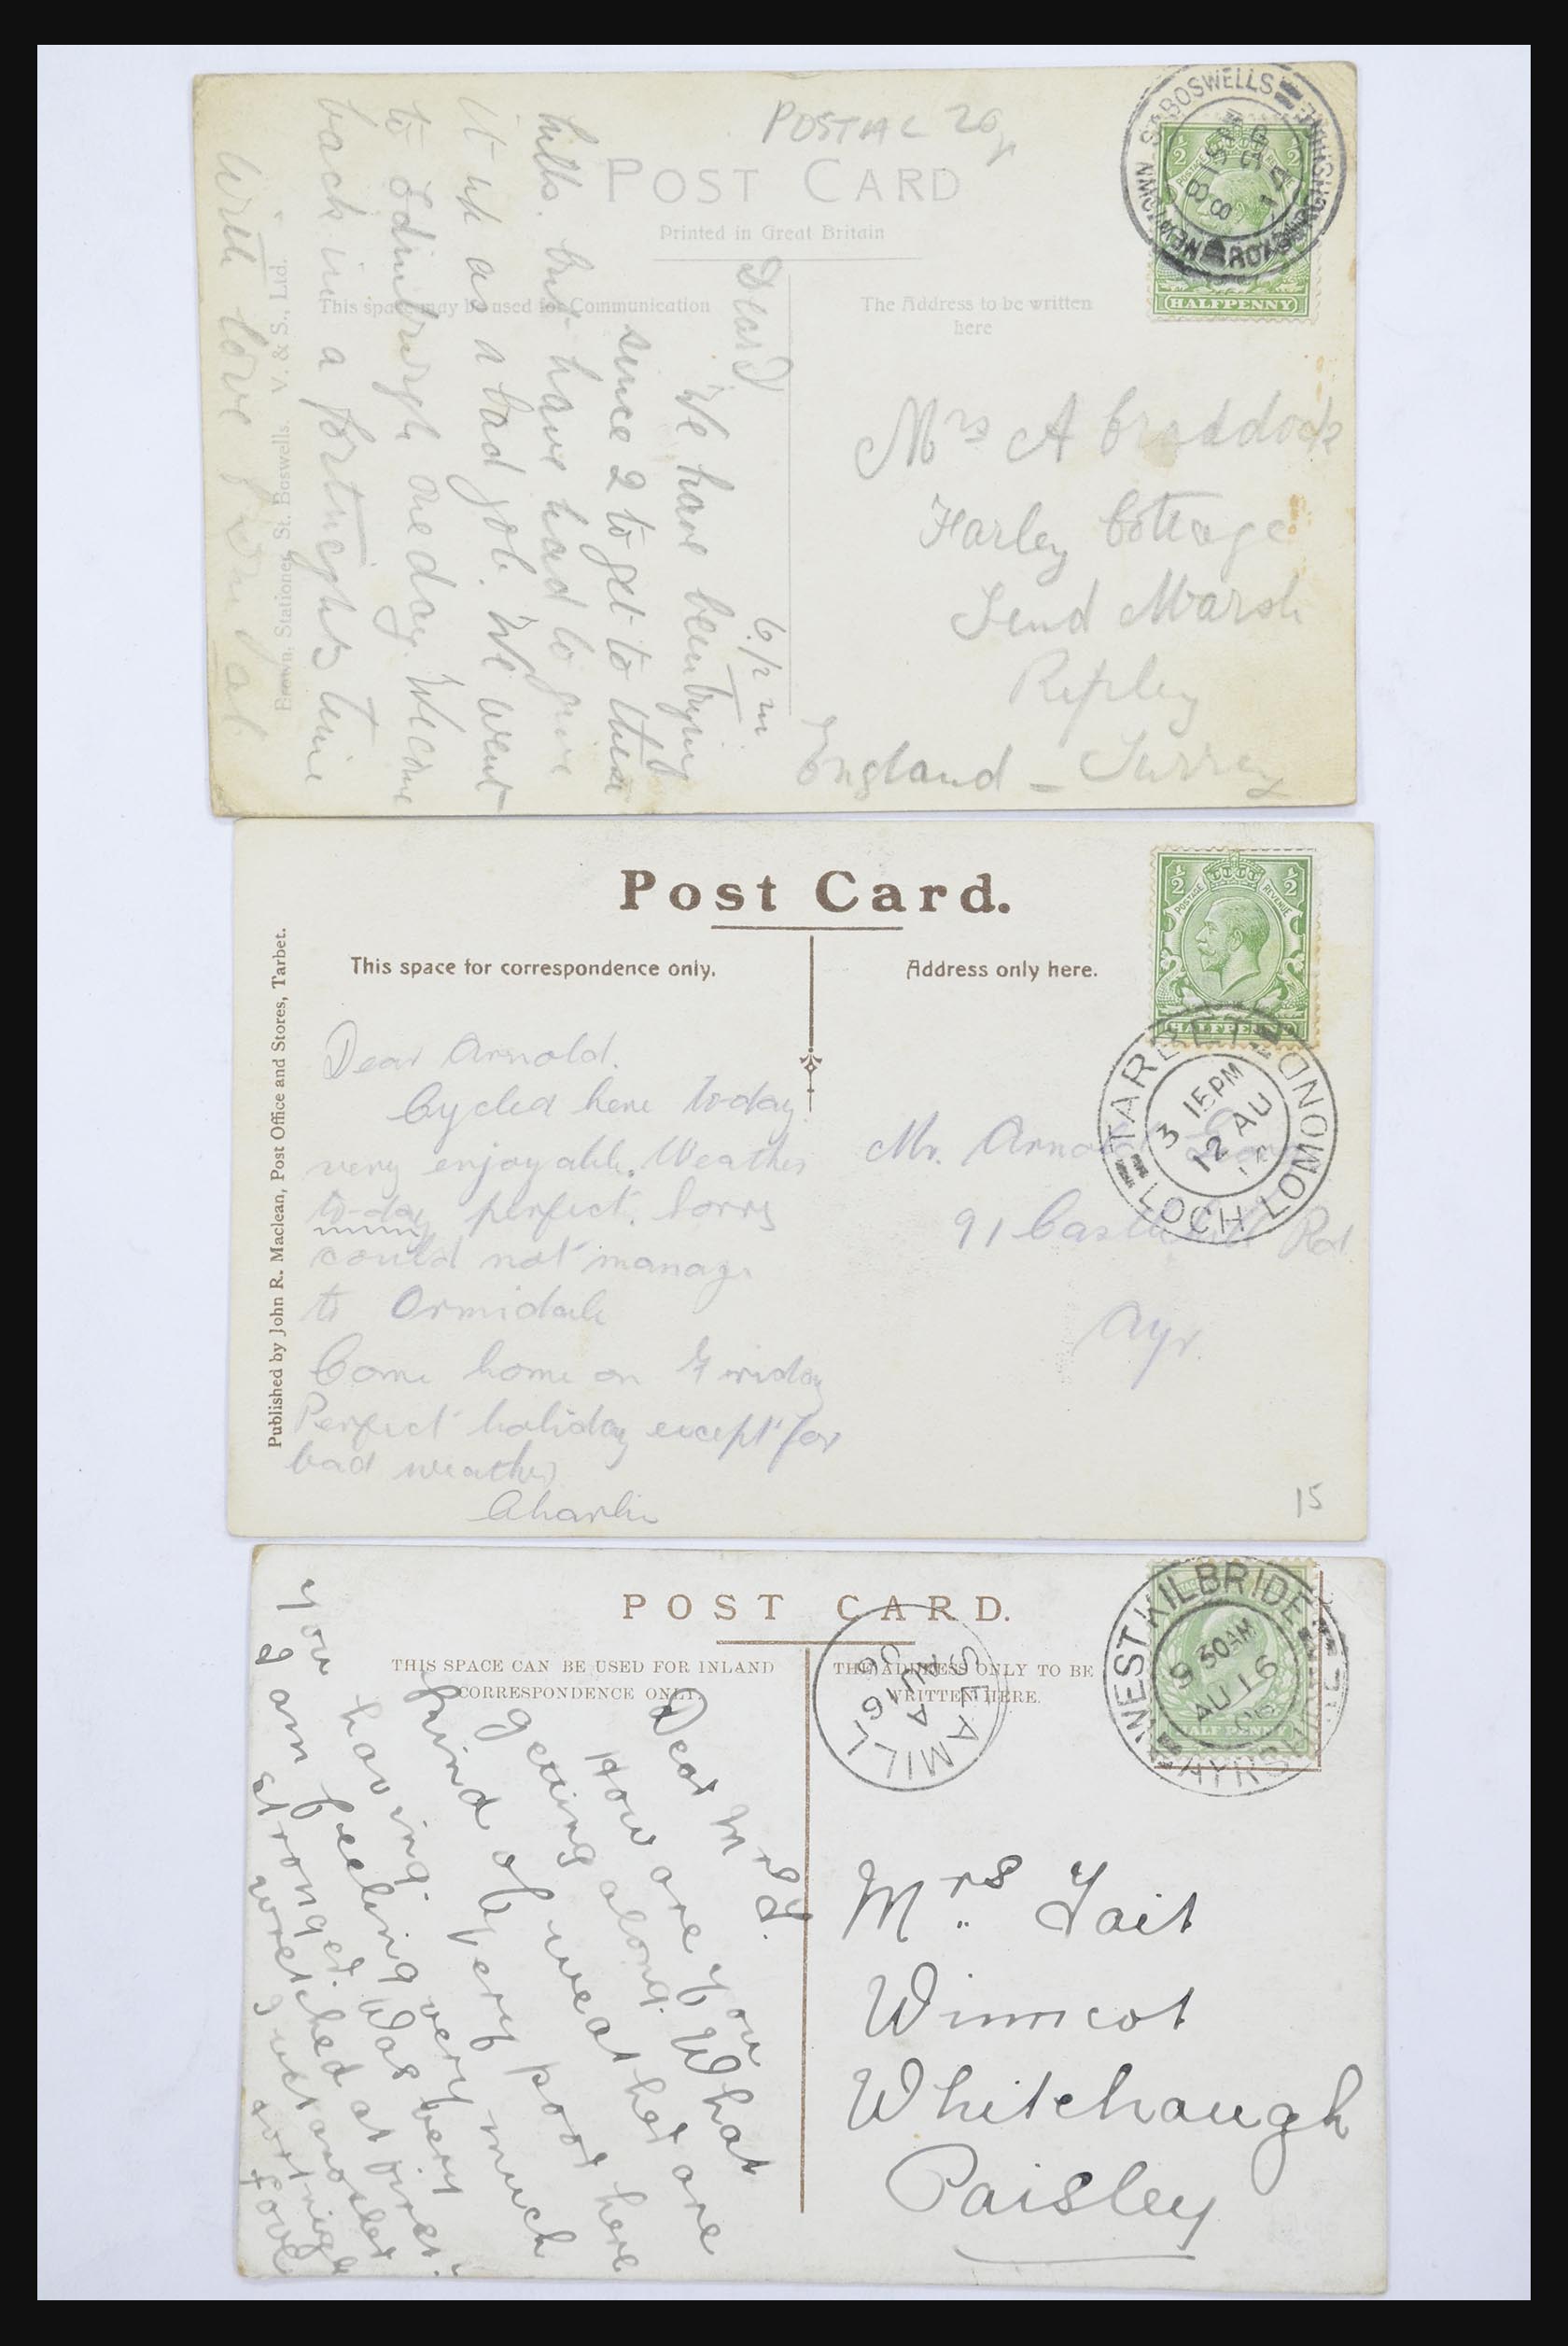 POSTAL 20
POST CARD
Printed in Great Britain
This space may be used for Communication
The Address to be written
here
NEWTOWN ST BOSWELLS
ROXBURGHSHIRE
HALFPENNY
Dear D
6. p m
We have been trying
since 2 to get to these
hills. but have had to give
it up as a bad job. We went
to Edinburgh one day. We come
back in a fortnights time
With love from
Brown, Stationer, St. Boswells. V. & S., Ltd.
Mrs A Craddock
Harley Cottage
Send Marsh
Ripley
England - Surrey
Post Card.
This space for correspondence only.
Address only here.
Published by John R. Maclean, Post Office and Stores, Tarbet.
POSTAGE REVENUE
HALFPENNY
TARBET
LOCH LOMOND
3 15PM
12 AU
Dear Arnold.
Cycled here to-day
very enjoyable. Weather
to-day perfect. Sorry
could not manage
to Ormidale
Come home on Friday
Perfect holiday except for
bad weather
Charlie
Mr. Arnold
91 Castlehill Rd
Ayr.
15
POST CARD.
THIS SPACE CAN BE USED FOR INLAND
CORRESPONDENCE ONLY.
THE ADDRESS ONLY TO BE
WRITTEN HERE.
WEST KILBRIDE
AYRSHIRE
9 30AM
AU 16
06
HALF PENNY
SEAMILL
A
AU 16
06
Dear Mrs T.
How are you
getting along. What
kind of weather are
you having. Very poor here
I am feeling very much
stronger. Was very
wretched at first.
Just another
fortnight
Love
Mrs. Tait
Winncot
Whitehaugh
Paisley